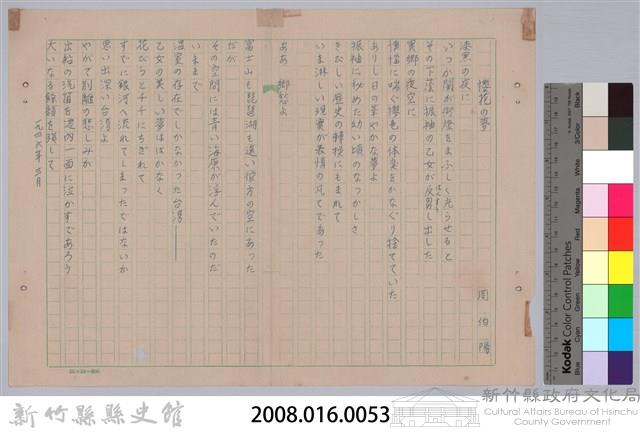 櫻花の夢
周伯陽
漆黒の夜に
いつか閣が街燈をまぶしく光らせると
その下陰に振袖の乙女が反射し出した
はんしや
異郷の夜空に
憧憬に喘ぐ櫻色の体臭をかなぐり捨てていた
ありし日の華やかな夢よ
振袖に秘めた幼い頃のなつかしさ
きびしい歴史の轉換にもまれて
いま淋しい現實が最情の凡てであった
ああ 郷愁よ
富士山も琵琶湖も遠い彼方の空にあった
だが
その空間には青い海原が浮んでいたのだ
いままで
温室の存在でしかなかった台湾——
乙女の美しい夢ははかなく
花びらと千々にちぎれて
すでに銀河へ流れてしまったではないか
思い出深い台湾よ
やがて別離の悲しみが
出船の汽笛を港内一面に泣かすであろう
大いなる餘韻を殘して
一九四六年三月
新竹縣縣史館
2008.016.0053
新竹縣政府文化局
Cultural Affairs Bureau of Hsinchu County Government
Kodak Color Control Patches
Blue
Cyan
Green
Yellow
Red
Magenta
White
3/Color
Black